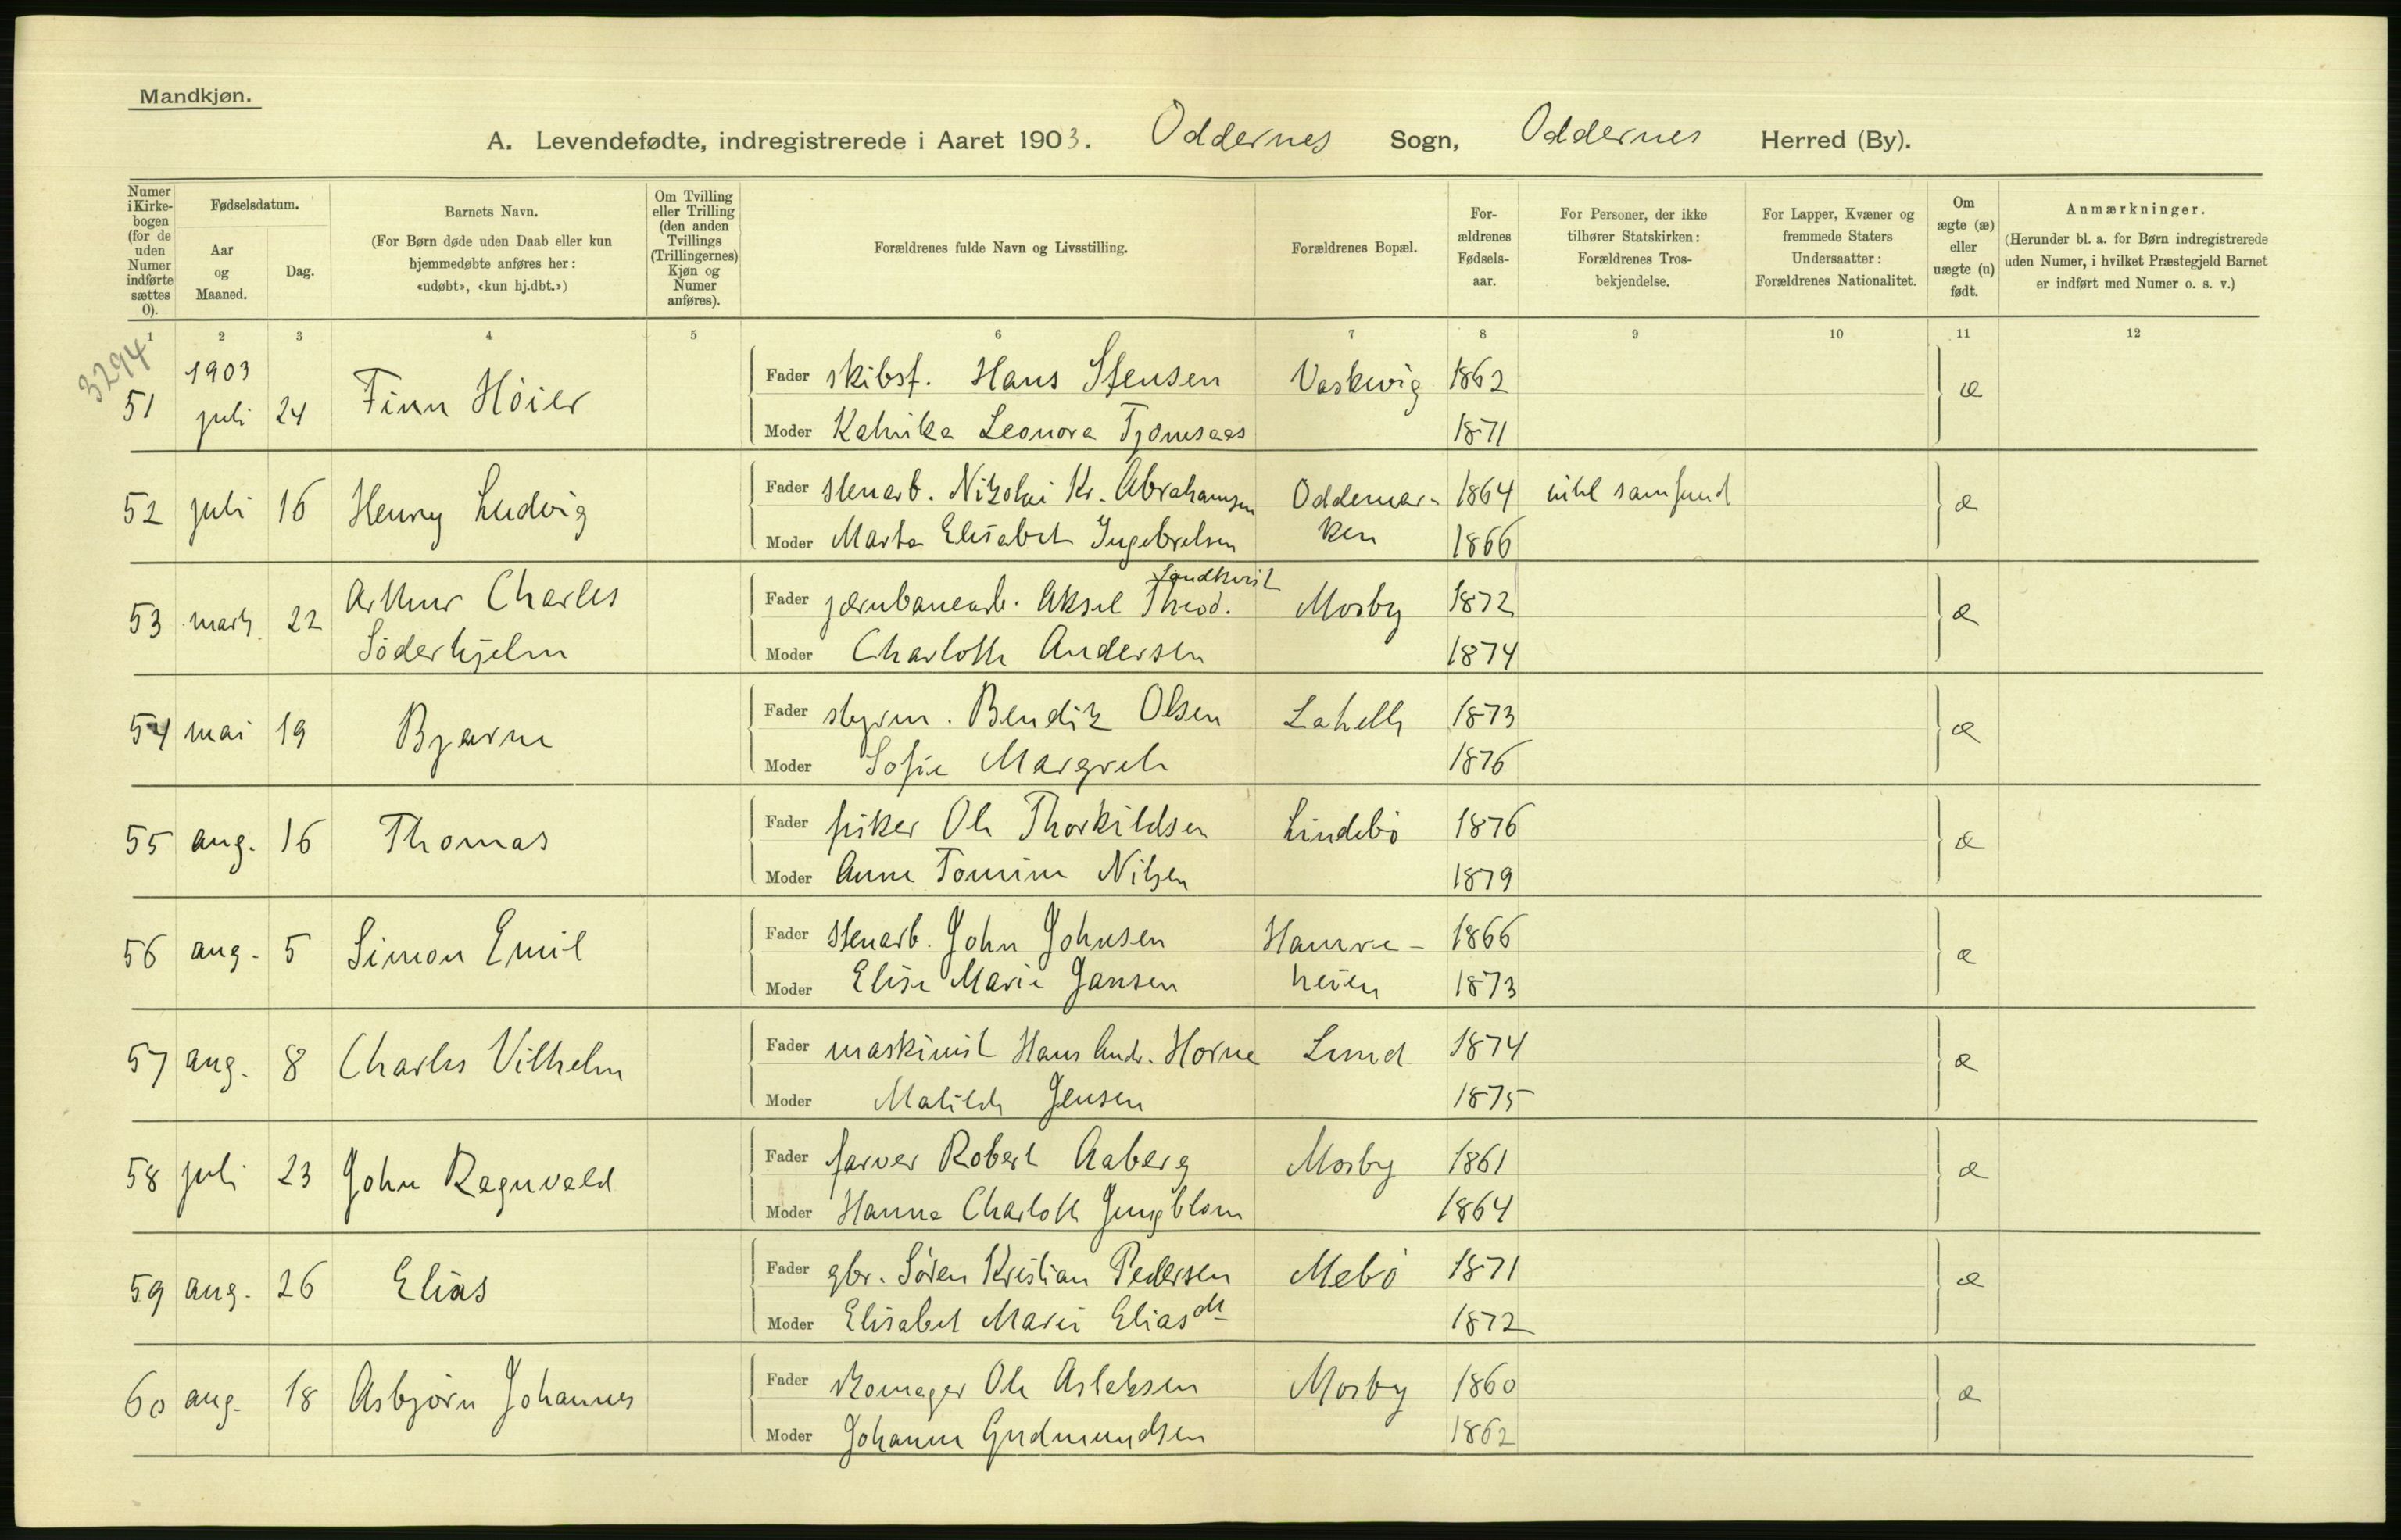 Mandkjøn.
A. Levendefødte, indregistrerede i Aaret 1903. Oddernes Sogn, Oddernes Herred (By).
Numer i Kirkebogen (for de uden Numer indførte sættes 0).
Fødselsdatum.
Aar og Maaned.
Dag.
Barnets Navn.
(For Børn døde uden Daab eller kun hjemmedøbte anføres her: «udøbt», «kun hj.dbt.»)
Om Tvilling eller Trilling (den anden Tvillings (Trillingernes) Kjøn og Numer anføres).
Forældrenes fulde Navn og Livsstilling.
Forældrenes Bopæl.
Forældrenes Fødselsaar.
For Personer, der ikke tilhører Statskirken: Forældrenes Trosbekjendelse.
For Lapper, Kvæner og fremmede Staters Undersaatter: Forældrenes Nationalitet.
Om ægte (æ) eller uægte (u) født.
Anmærkninger.
(Herunder bl. a. for Børn indregistrerede uden Numer, i hvilket Præstegjeld Barnet er indført med Numer o. s. v.)
1 2 3 4 5 6 7 8 9 10 11 12
3294
1903
51 juli 24 Finn Höier Fader skibsf. Hans Stensen Vaskvig 1862 æ
Moder Leonora 1871
52 juli 16 Henry Ludvig Fader stenarb. Nikolai Kr. Abrahamsen Oddemar- 1864 samfund æ
Moder Marta Elisabet Ingebretsen ken 1866
53 marts 22 Arthur Charles Söderhjelm Fader jernbanearb. Aksel Theod. Landkvist Mosby 1872 æ
Moder Charlotte Andersen 1874
54 mai 19 Bjarne Fader styrm. Bendik Olsen Lahelle 1873 æ
Moder Sofie Margrete 1876
55 aug. 16 Thomas Fader fisker Ole Thorkildsen Lindebö 1876 æ
Moder Anne Tomine Nilsen 1879
56 aug. 5 Simon Emil Fader stenarb. John Johnsen Hamre- 1866 æ
Moder Elise Marie Jansen heien 1873
57 aug. 8 Charles Vilhelm Fader maskinist Hans Andr. Horne Lund 1874 æ
Moder Matilde Jensen 1875
58 juli 23 John Ragnvald Fader farver Robert Aaberg Mosby 1861 æ
Moder Hanna Charlotte Jungblom 1864
59 aug. 26 Elias Fader gbr. Sören Kristian Pedersen Mebö 1871 æ
Moder Elisabet Marie Eliasdt 1872
60 aug. 18 Asbjörn Johannes Fader skomager Ole Aslaksen Mosby 1860 æ
Moder Johanne Gudmundsen 1862